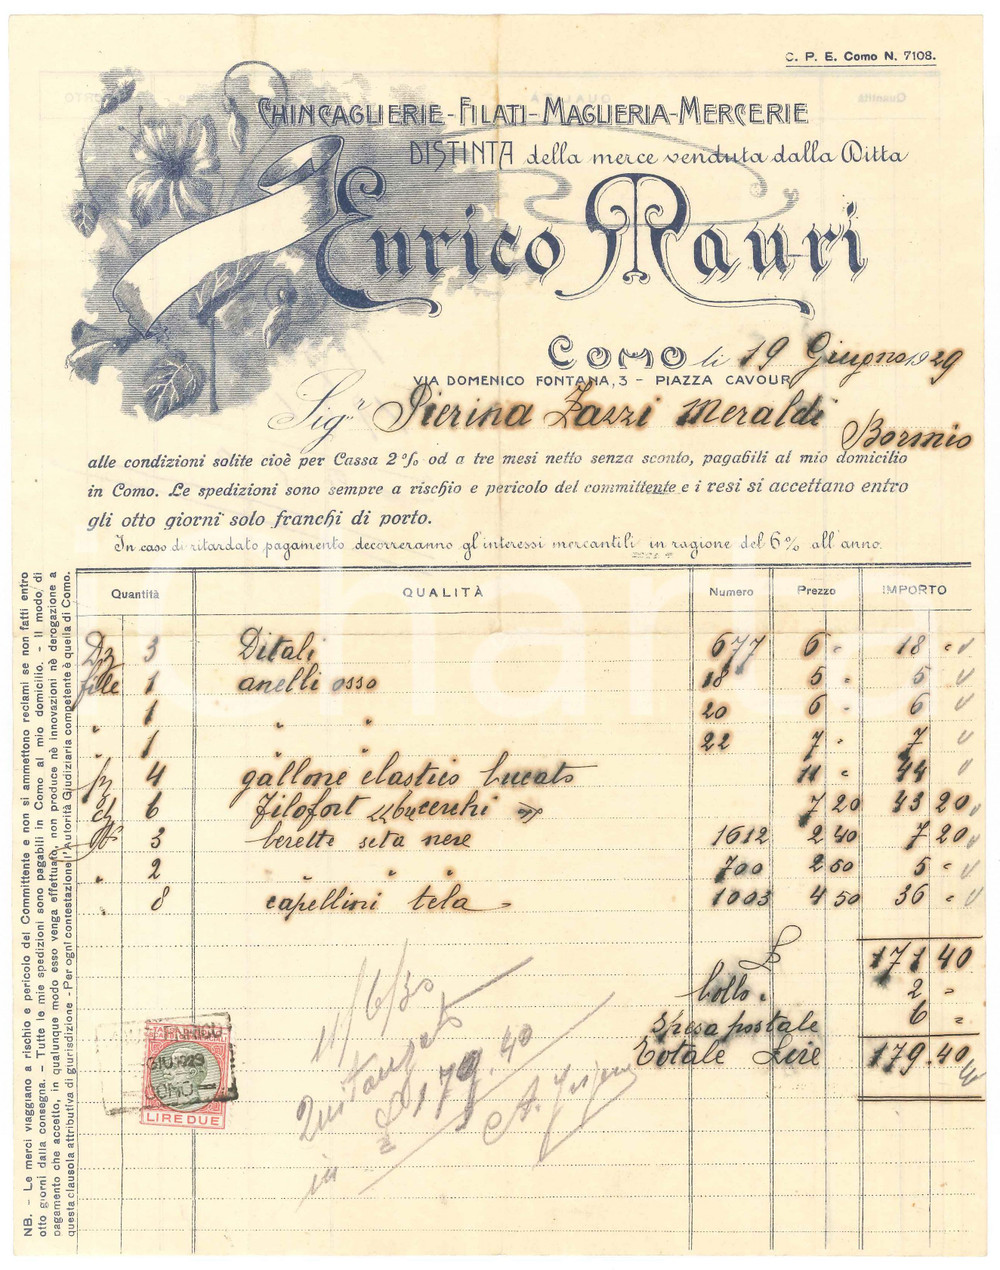 C. P. E. Como N. 7108.
CHINCAGLIERIE-FILATI-MAGLIERIA-MERCERIE
DISTINTA della merce venduta dalla Ditta
Enrico Mauri
COMO li 19 Giugno 1929
VIA DOMENICO FONTANA, 3 - PIAZZA CAVOUR
Sigr Pierina Zazzi Meraldi
Bormio
alle condizioni solite cioè per Cassa 2% od a tre mesi netto senza sconto, pagabili al mio domicilio
in Como. Le spedizioni sono sempre a rischio e pericolo del committente e i resi si accettano entro
gli otto giorni solo franchi di porto.
In caso di ritardato pagamento decorreranno gl'interessi mercantili in ragione del 6% all'anno.
Quantità QUALITÀ Numero Prezzo IMPORTO
Dz 3 Ditali 677 6 - 18 -
file 1 anelli osso 18 5 - 5
" 1 " " 20 6 - 6
" 1 " " 22 7 - 7
pz 4 gallone elastico bucato 11 - 44
6 Filofort cerchi 7 20 43 20
3 berette seta nere 1612 2 40 7 20
" 2 " " " 700 2 50 5 -
" 8 capellini tela - 1003 4 50 36 -
L 171 40
bollo . 2 -
Spesa postale 6 -
Totale Lire 179.40
11/6/30
Quitanzato
in £ 179.40
ENRICO
GIU 1929
COMO
LIRE DUE
NB. - Le merci viaggiano a rischio e pericolo del Committente e non si ammettono reclami se non fatti entro
otto giorni dalla consegna. - Tutte le mie spedizioni sono pagabili in Como al mio domicilio. - Il modo di
pagamento che accetto, in qualunque modo esso venga effettuato, non produce nè innovazioni nè derogazione a
questa clausola attributiva di giurisdizione - Per ogni contestazione l'Autorità Giudiziaria competente è quella di Como.